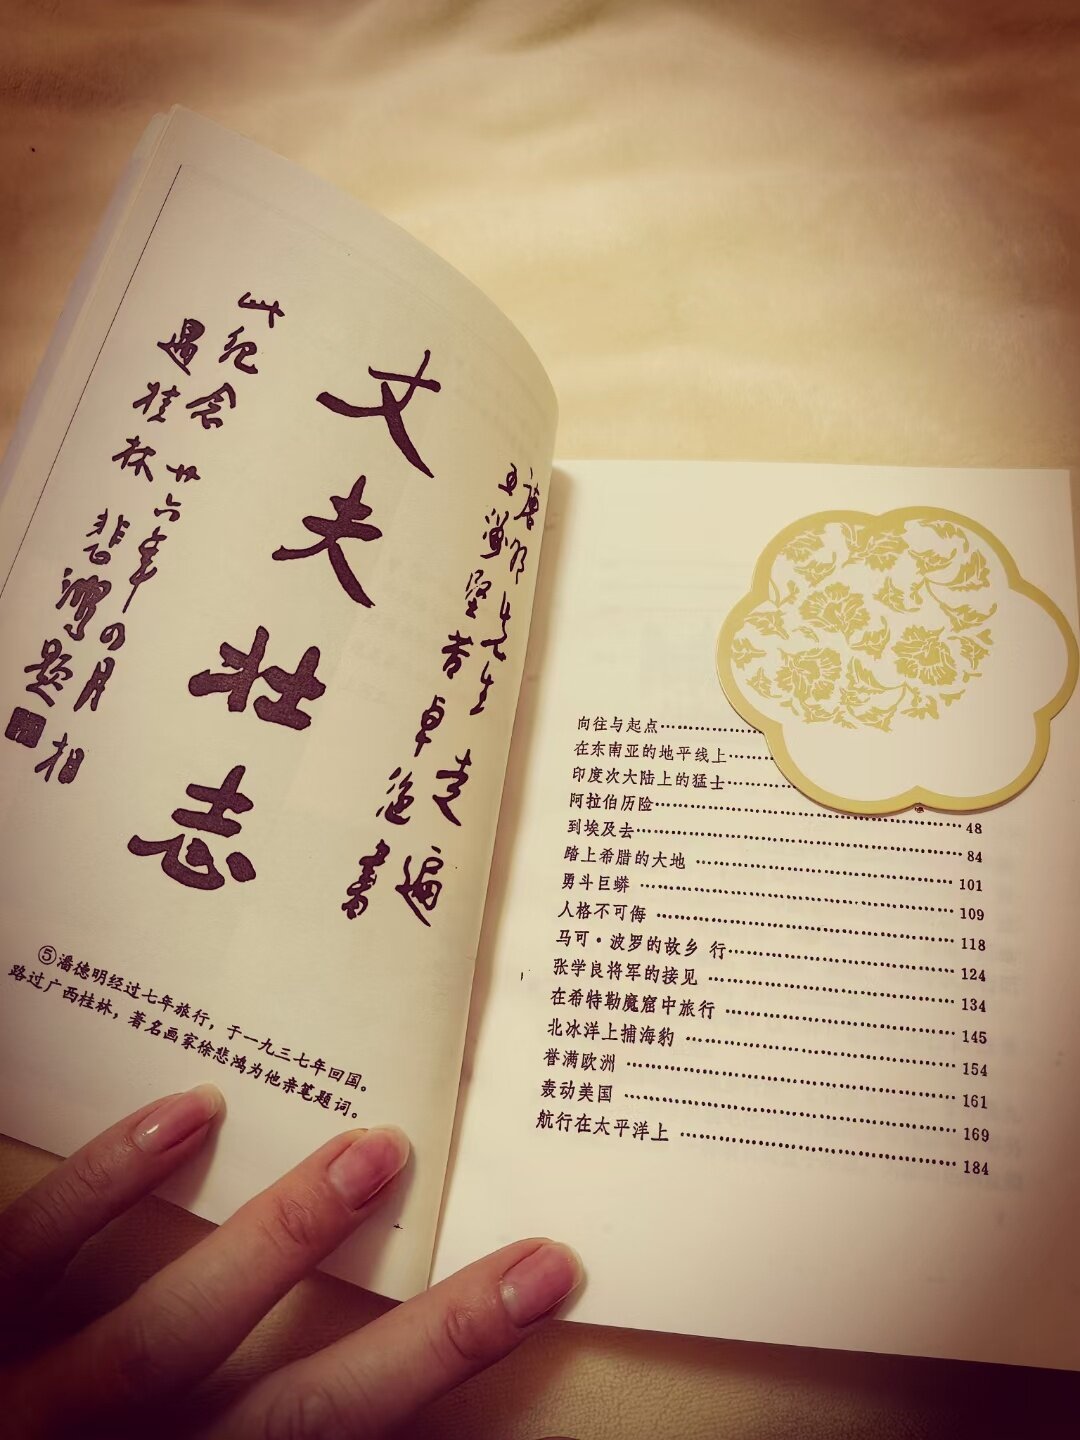 德明先生走遍
五洲堅苦卓绝書
丈夫壮志
此纪念 廿六年四月相
遇桂林 悲鴻题
⑤潘德明经过七年旅行，于一九三七年回国。
路过广西桂林，著名画家徐悲鸿为他亲笔题词。
向往与起点……………
在东南亚的地平线上……
印度次大陆上的猛士……
阿拉伯历险……………………48
到埃及去……………………84
踏上希腊的大地……………………101
勇斗巨蟒……………………109
人格不可侮……………………118
马可·波罗的故乡 行……………………124
张学良将军的接见……………………134
在希特勒魔窟中旅行……………………145
北冰洋上捕海豹……………………154
誉满欧洲……………………161
轰动美国……………………169
航行在太平洋上……………………184